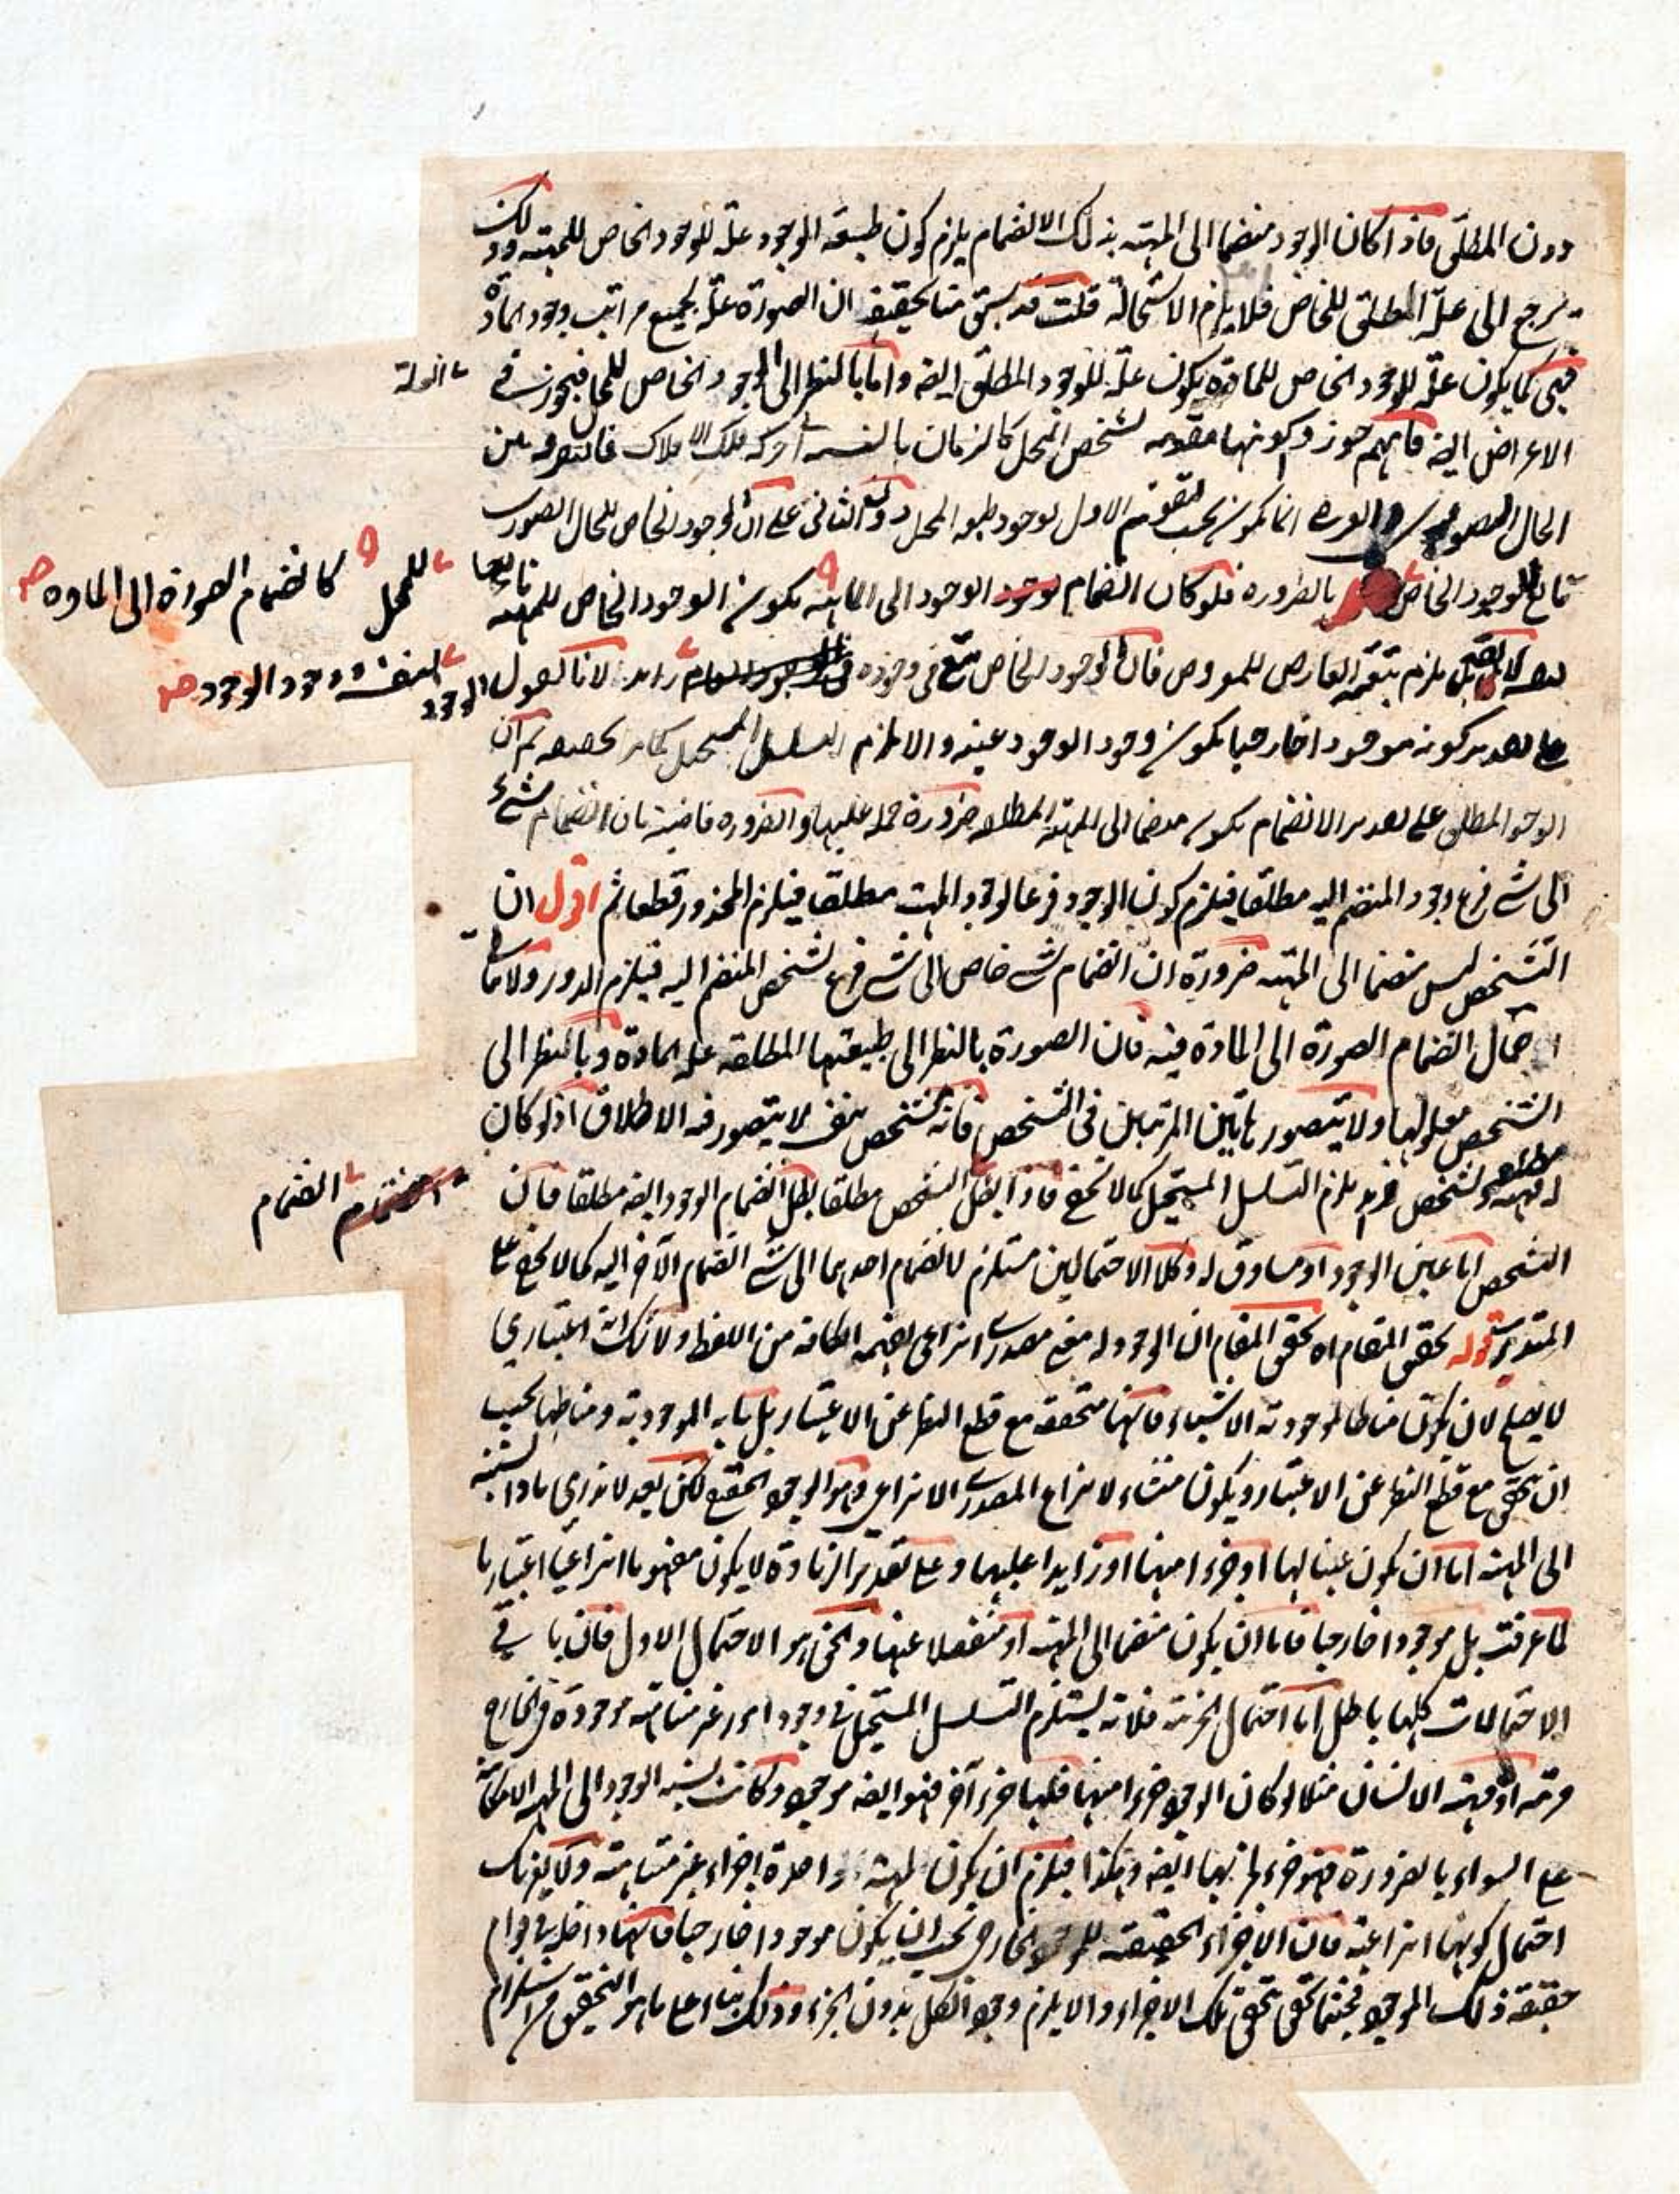 دون المطلق فاذا كان الوجود منضما الى المهية بذلك الانضمام يلزم كون طبيعة الوجود علة للوجود الخاص للمهية وذلك
يرجع الى علة المطلق للخاص فلا يلزم الاستحالة قلت قد سبق منا تحقيقه ان الصورة علة لجميع مراتب وجود المادة
فهى كما يكون علة للوجود الخاص للمادة يكون علة للوجود المطلق ايضه واما بالنظر الى الوجود الخاص للمحل فيجوز فى
الاعراض ايضه فانهم جوزوا كونها مقومه لتشخص المحل كالزمان بالنسبة حركة فلك الافلاك فالتفرقه بين
الحال الصورى انما يكون بحسب تقويم الاول لوجود طبيعه المحل دون الثانى على ان الوجود الخاص للحال الصورى
تابع للوجود الخاص بالضروره فلو كان انضمام الوجود الى الماهيه يكون الوجود الخاص للمهية تابعا
للمحل كانضمام الصورة الى الماده صح
بل يلزم تبعية العارض للمعروض فان الوجود الخاص فى وجوده زايد لانا نقول الوجود
لنفسه وجود الوجود صح
على تقدير كونه موجودا خارجيا يكون وجود الوجود عينه والا لزم التسلسل المستحيل كما تحقيقه ثم ان
الوجود المطلق على تقدير الانضمام يكون منضما الى المهية المطلقه ضرورة حمله عليها والضروره قاضية بان انضمام شئ
الى شئ فرع وجود المنضم اليه مطلقا فيلزم كون الوجود فرعا لوجود المهية مطلقا فيلزم المحذور قطعا ثم اقول ان
التشخص ليس منضما الى المهية ضرورة ان انضمام شئ خاص الى شئ فرع تشخص المنضم اليه فيلزم الدور ولا مساغ
احتمال انضمام الصورة الى المادة فيه فان الصورة بالنظر الى طبيعتها المطلقه علة المادة وبالنظر الى
التشخص معلولها ولا يتصور هاتين المرتبتين فى التشخص فانه تشخص بنفسه لا يتصور فيه الاطلاق اذ لو كان
له مهية وتشخص يلزم التسلسل المستحيل كما لا يخفى فاذا بطل انضمام التشخص مطلقا بطل انضمام الوجود ايضه مطلقا فان
انضمام
التشخص اما عين الوجود او مساوق له وكلا الاحتمالين مستلزم لانضمام احدهما الى شئ انضمام الآخر اليه كما لا يخفى على
المتدبر قوله تحقيق المقام اه تحقيق المقام ان الوجود له معنى مصدرى انتزاعى يفهمه الكافة من اللفظ ولا شك انه اعتبارى
لا يصلح لان يكون مناطا لموجودية الاشياء فانها متحققه مع قطع النظر عن الاعتبار بل ما به الموجودية ومناطها يجب
ان يتحقق مع قطع النظر عن الاعتبار ويكون منشاء لانتزاع المصدرى الانتزاعى وهو الوجود الحقيقى لكن بعد لا ندرى ماذا نسبته
الى المهية اما ان يكون عينا لها او جزءا منها او زايدا عليها وعلى تقدير الزيادة لا يكون مفهوما انتزاعيا اعتباريا
لما عرفت بل موجودا خارجيا فاما ان يكون منضما الى المهية او منفصلا عنها والحق هو الاحتمال الاول فان باقى
الاحتمالات كلها باطل اما احتمال الجزئية فلانه يستلزم التسلسل المستحيل فى وجود امور غير متناهيه موجودة فى الخارج
مرتبة او مهية الانسان مثلا لو كان الوجود جزءا منها فلها جزء آخر فهو ايضه موجود وكانت نسبه الوجود الى المهية الامكانية
على السواء بالضرورة فهو جزء لجزئها ايضه وهكذا فيلزم ان يكون لمهية واحدة اجزاء غير متناهية ولا يغرنك
احتمال كونها انتزاعية فان الاجزاء الحقيقيه للموجود الخارجى يجب ان يكون موجودا خارجيا فانها داخله فى قوام
حقيقة ذلك الموجود فحيثما تحقق تحقق تلك الاجزاء والا يلزم وجود الكل بدون الجزء وذلك بناء على ما هو التحقيق من استلزام